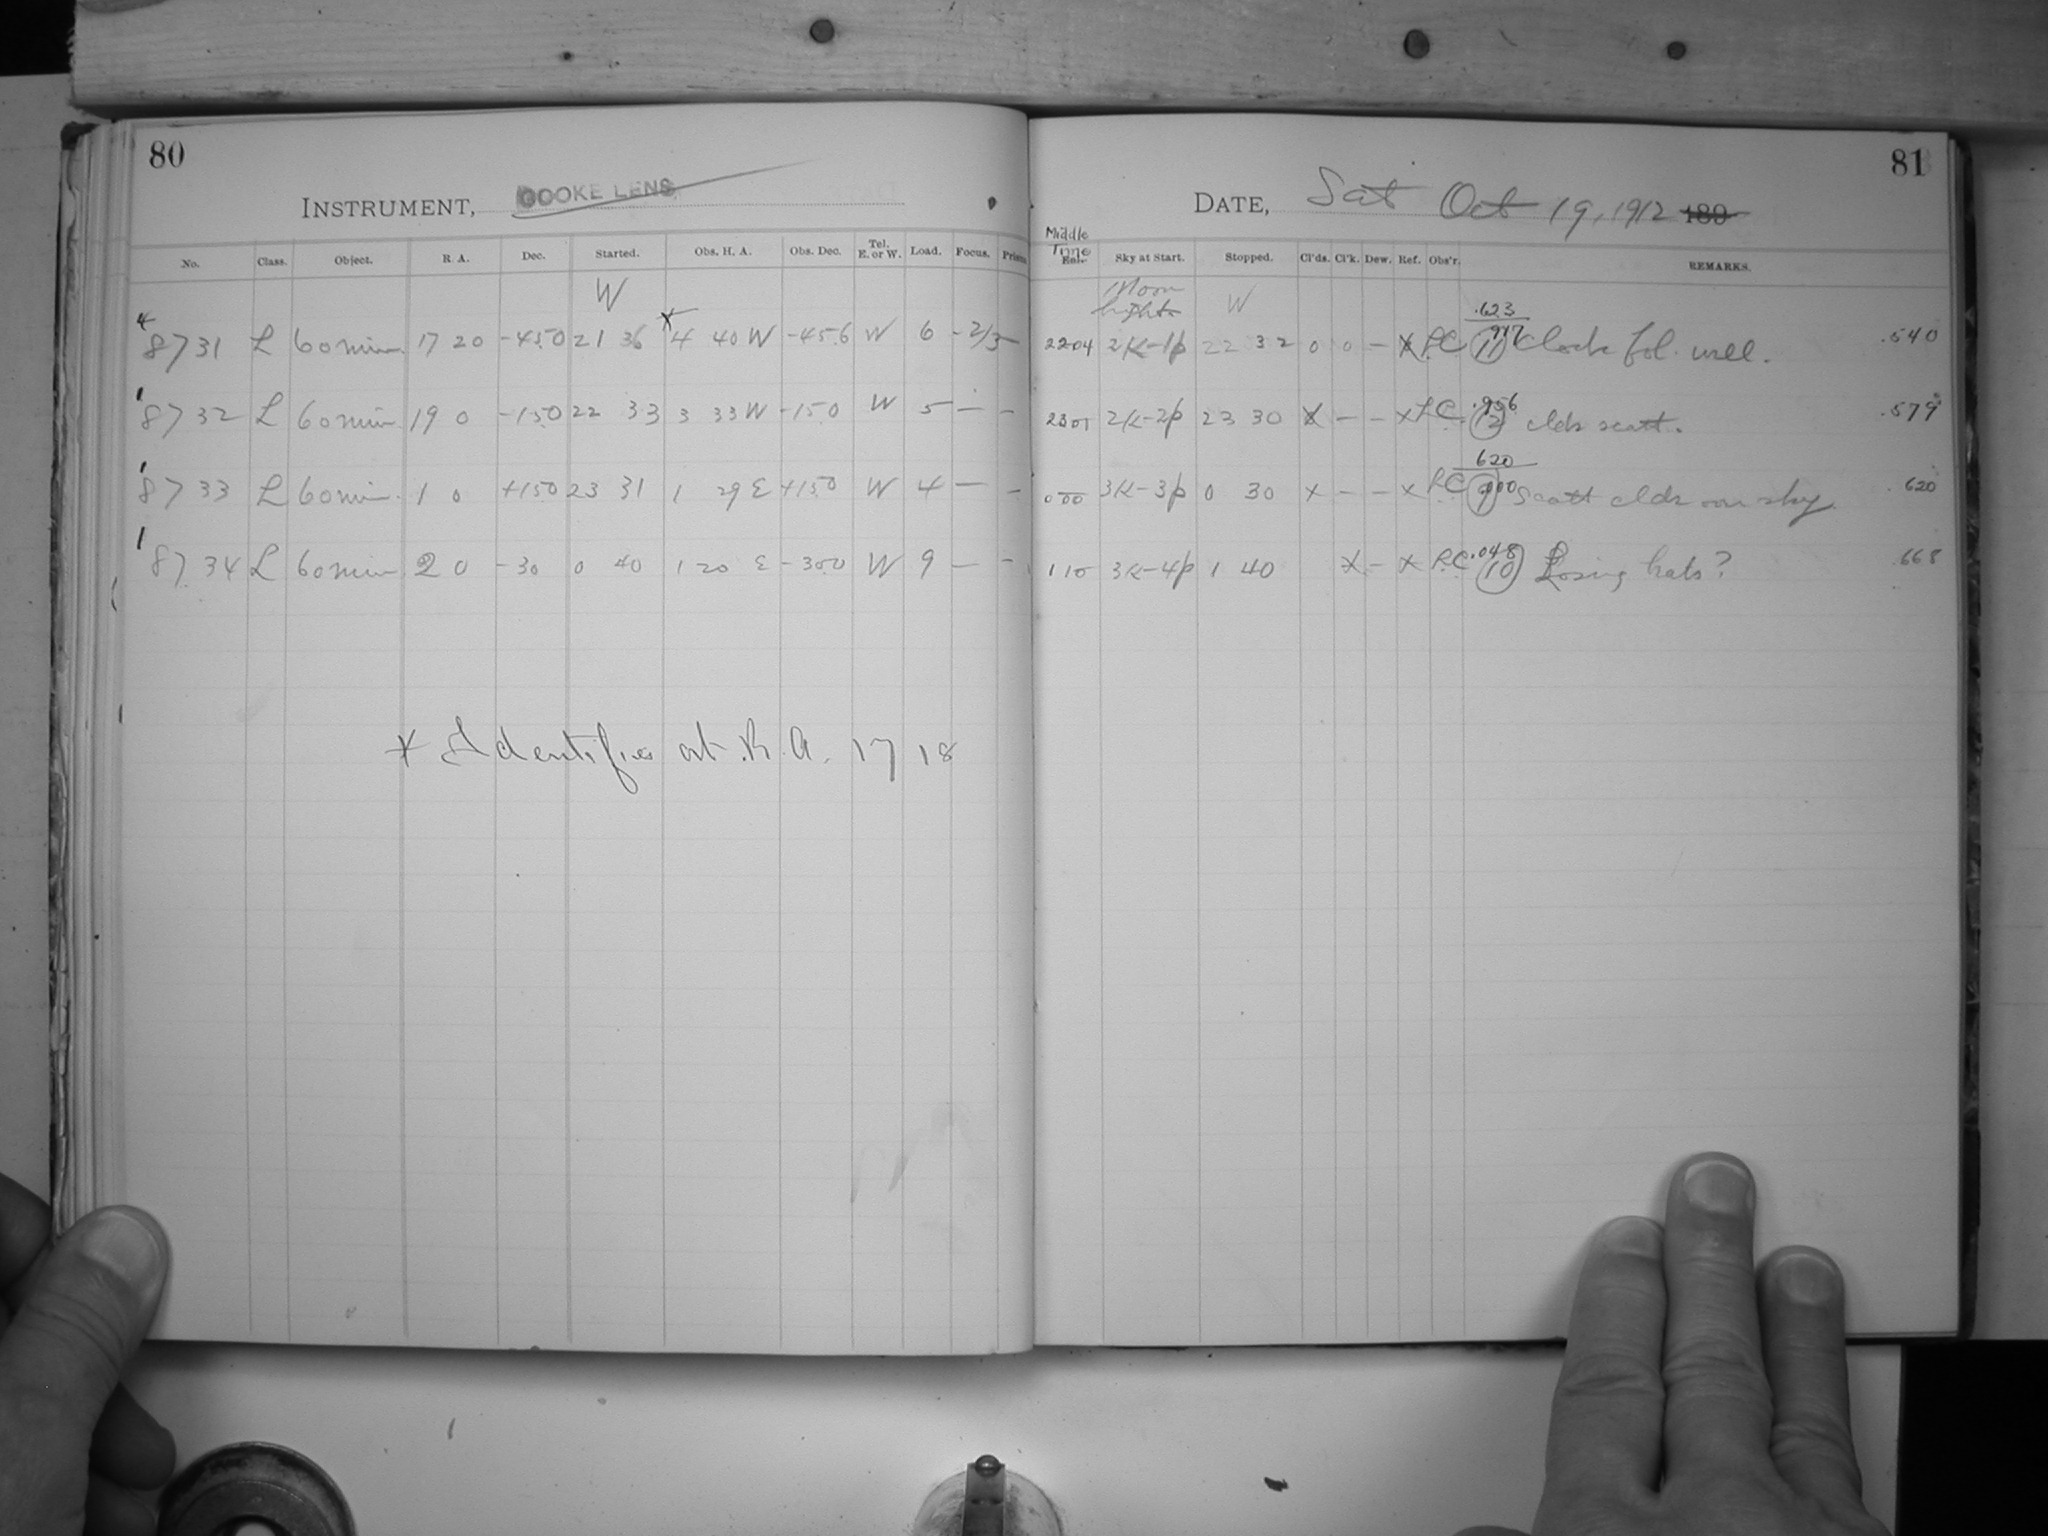 80
INSTRUMENT, COOKE LENS
No. Class. Object. R. A. Dec. Started. Obs. H. A. Obs. Dec. Tel. E. or W. Load. Focus. Prism
W
4 8731 L 60 min. 17 20 -45.0 21 36 * 4 40 W -45.6 W 6 -2/3 -
1 8732 L 60 min. 19 0 -15.0 22 33 3 33 W -15.0 W 5 — -
1 8733 L 60 min. 1 0 +15.0 23 31 1 29 E +15.0 W 4 — -
1 8734 L 60 min. 2 0 -30 0 40 1 20 E -30.0 W 9 — -
* Identifies at R.A. 17 18
81
DATE, Sat Oct 19, 1912 189
Middle Time Sky at Start. Stopped. Cl'ds. Cl'k. Dew. Ref. Obs'r. REMARKS.
Moon W
.623
2204 2K-1p 22 32 0 0 - X .947 (11) Clock fol. well. .540
.956
2301 2K-2p 23 30 X - - X (2) clds scatt. .579
620
000 3K-3p 0 30 X - - X Scatt clds over sky. .620
110 3K-4p 1 40 X - X P.C. .048 (10) Losing hats? .668